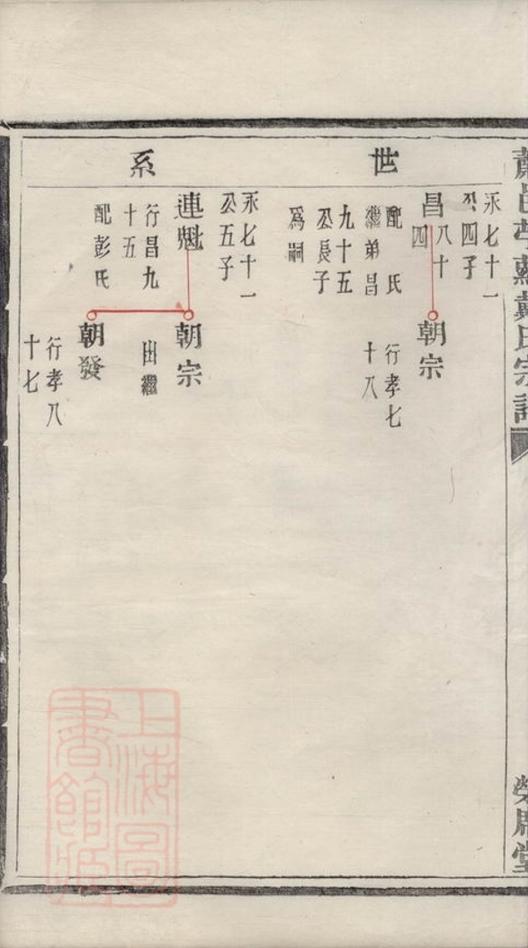 世系
永七十一
公四子
昌八十四
配 氏
繼弟昌
九十五
公長子
為嗣
朝宗
行孝七
十八
永七十一
公五子
連魁
行昌九
十五
配彭氏
朝宗
出繼
朝發
行孝八
十七
戴氏宗譜
榮居堂
上海圖
書館藏